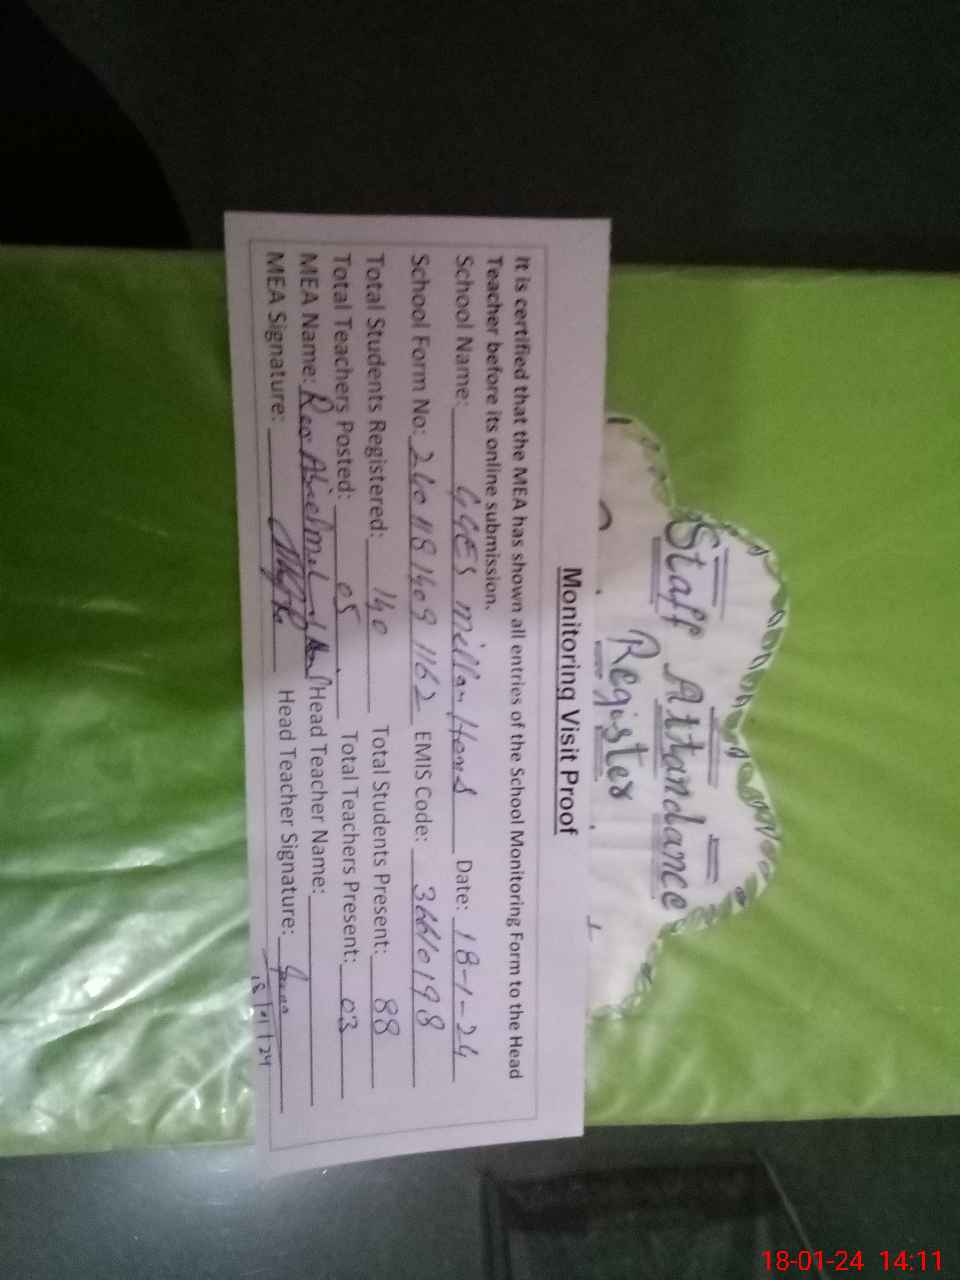 Staff Attandance
Register
Monitoring Visit Proof
It is certified that the MEA has shown all entries of the School Monitoring Form to the Head
Teacher before its online submission.
School Name: GGES Millan Hans Date: 18-1-24
School Form No: 2401181409 1162 EMIS Code: 36610198
Total Students Registered: 140 Total Students Present: 88
Total Teachers Posted: 05 Total Teachers Present: 03
MEA Name: Head Teacher Name:
MEA Signature: Head Teacher Signature:
18/01/24
18-01-24 14:11